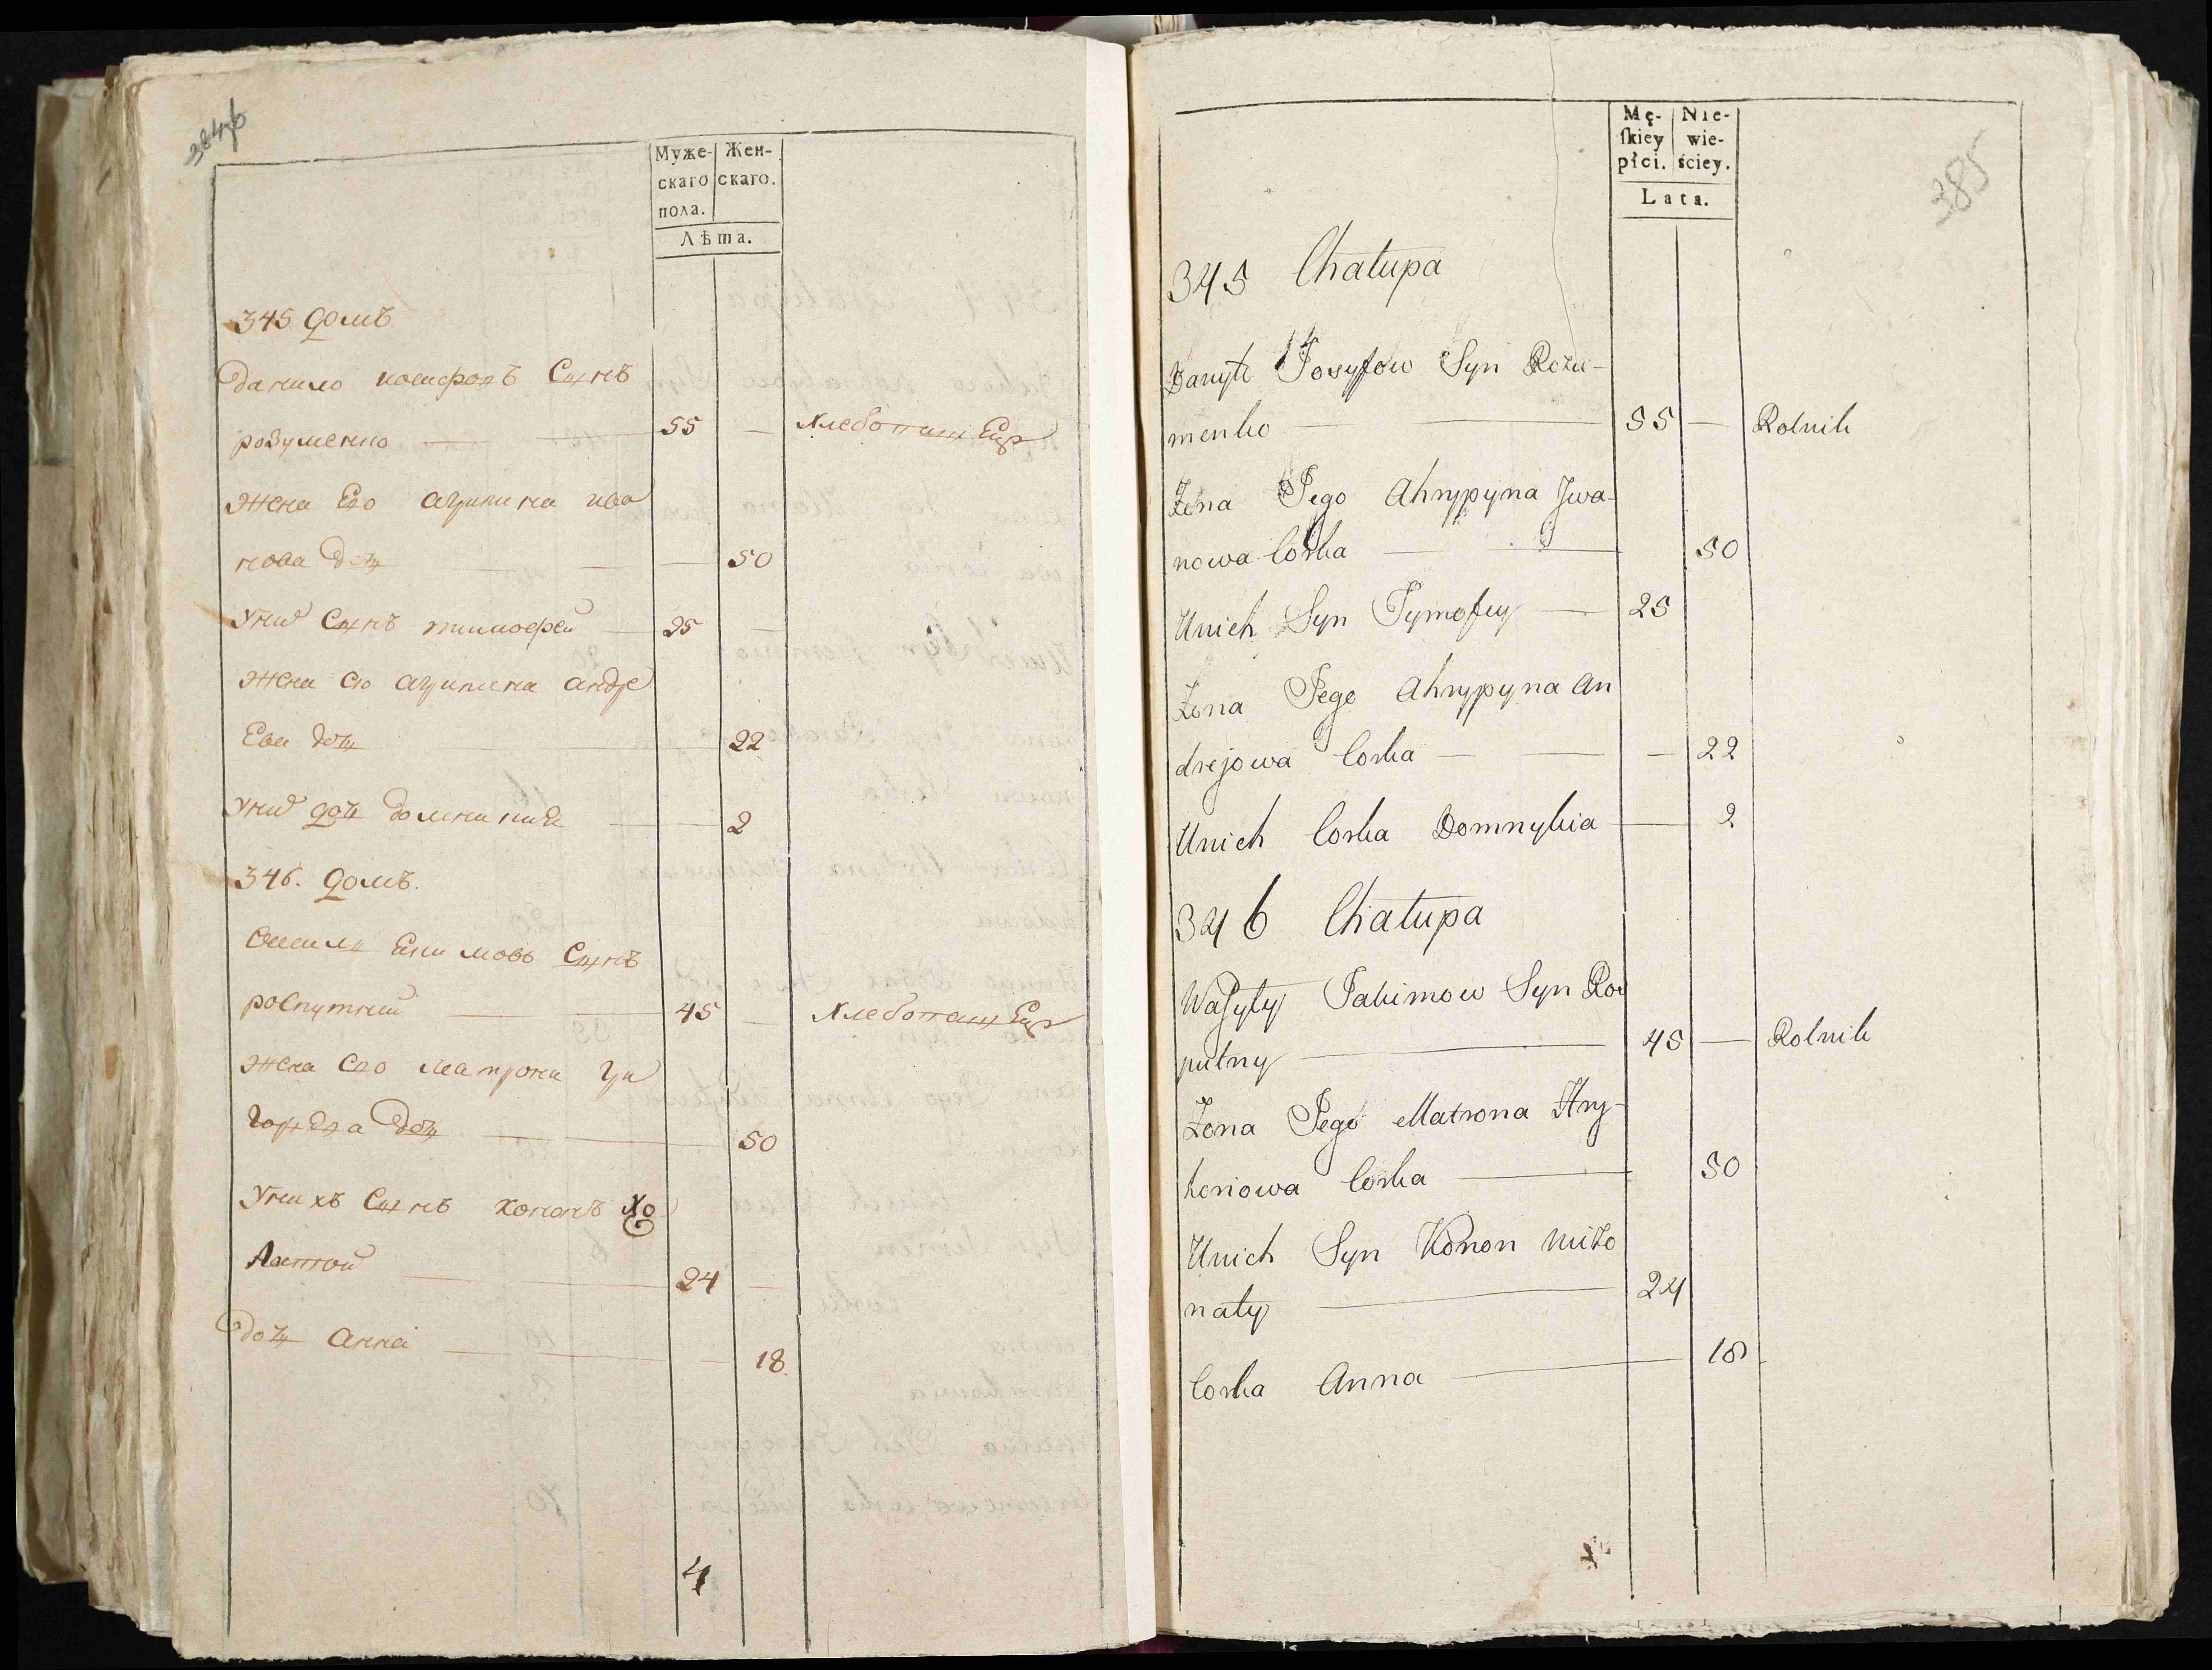 Муже-
скаго
пола.
Жен-
скаго.
Лѣта.
345 домъ
данило иосифовъ Сынъ
розуменко 55 — хлебопашец
жена Его агрипина ива
нова дочь 50
Уних Сынъ тимофей 25 —
жена его агрипина андре
Ева дочь 22
Уних дочь домникия 2
346. домъ.
васили Екимовъ Сынъ
роспутний 45 — хлебопашец
жена его матрона гри
горьева дочь 50
Унихъ Сынъ кононъ хо
лостой 24 —
дочь анна 18
4
385
Mę-
ſkiey
płci.
Nie-
wie-
ściey.
Lata.
345 Chałupa
Daniło Josyfow Syn Rozu-
menko 55 — Rolnik
Zona Jego Ahrypyna Jwa-
nowa Corka 50
Unich Syn Tymofey 25
Zona Jego Ahrypyna An
drejowa Corka — 22
Unich Corka Domnykia 2
346 Chałupa
Waſyly Jakimow Syn Ros
putny 45 — Rolnik
Zona Jego Matrona Hry-
horiowa Corka 50
Unich Syn Konon niżo
naty 24
Corka Anna 18